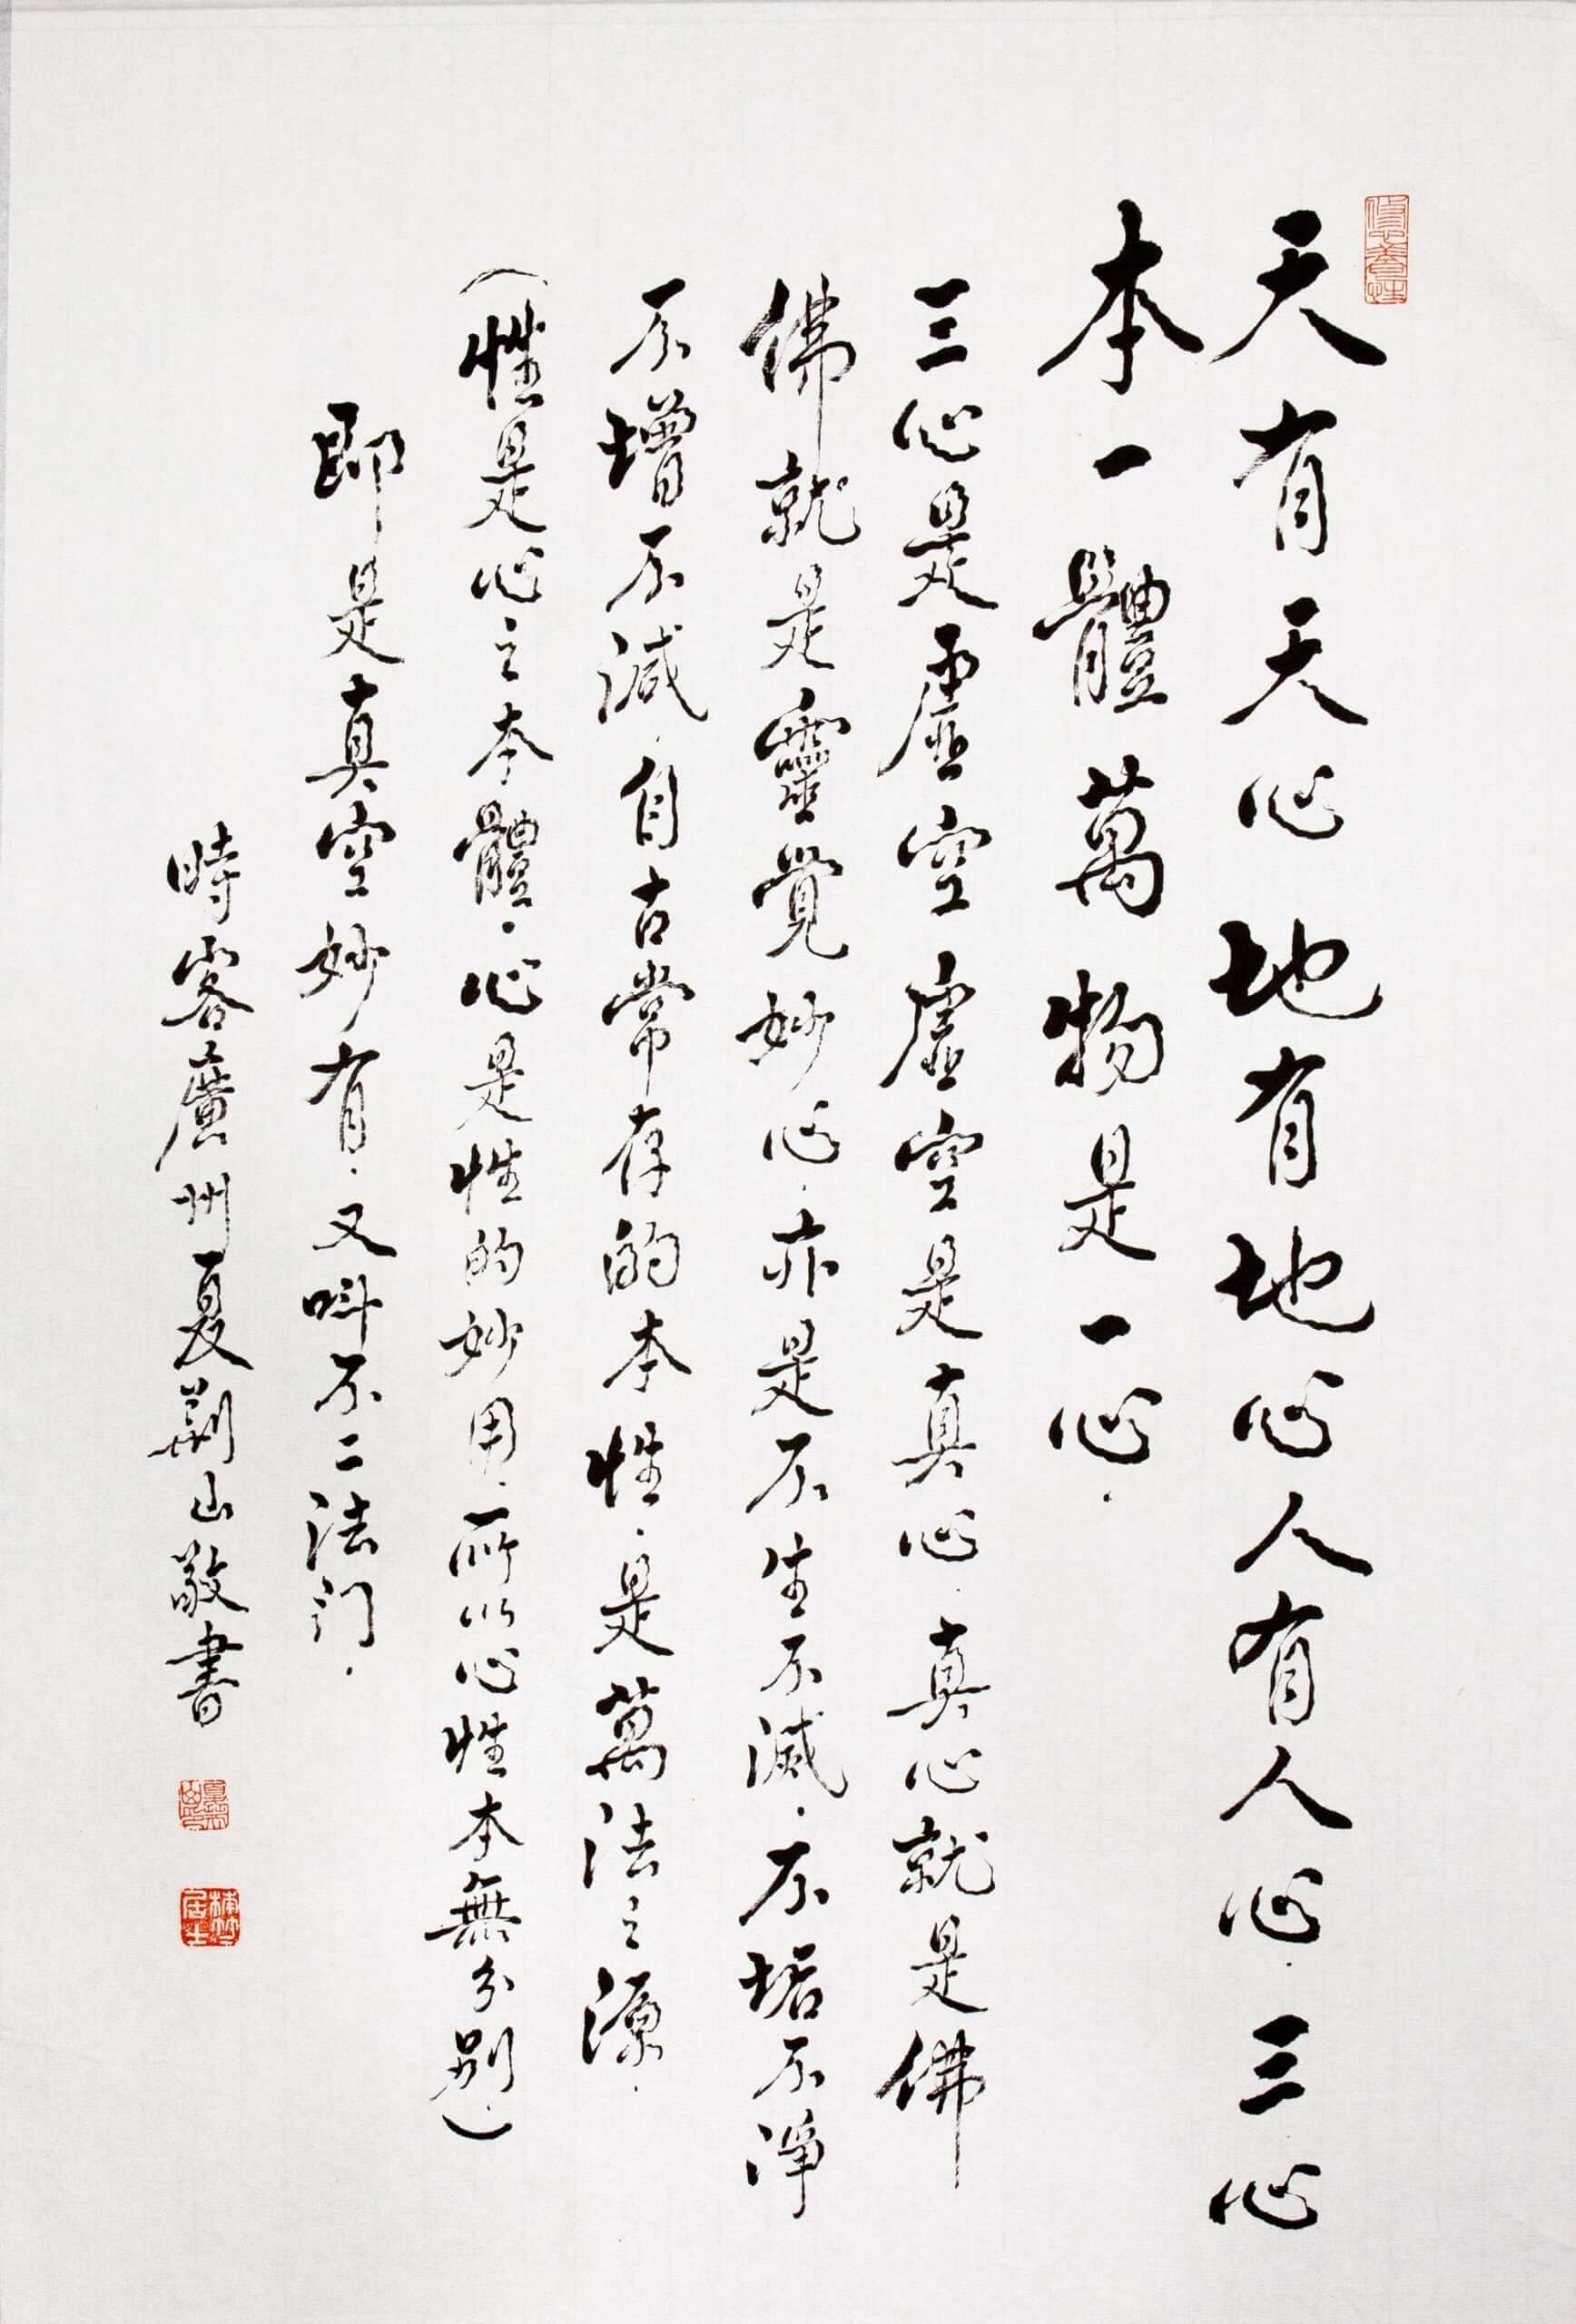 天有天心地有地心人有人心．三心
本一體萬物是一心．
三心是虛空虛空是真心．真心就是佛
佛就是靈覺妙心．亦是不生不滅．不垢不淨
不增不減．自古常存的本性．是萬法之源．
（性是心之本體．心是性的妙用．所以心性本無分別．）
即是真空妙有．又叫不二法門．
時客廣州夏荊山敬書
修心養性
楠竹居士